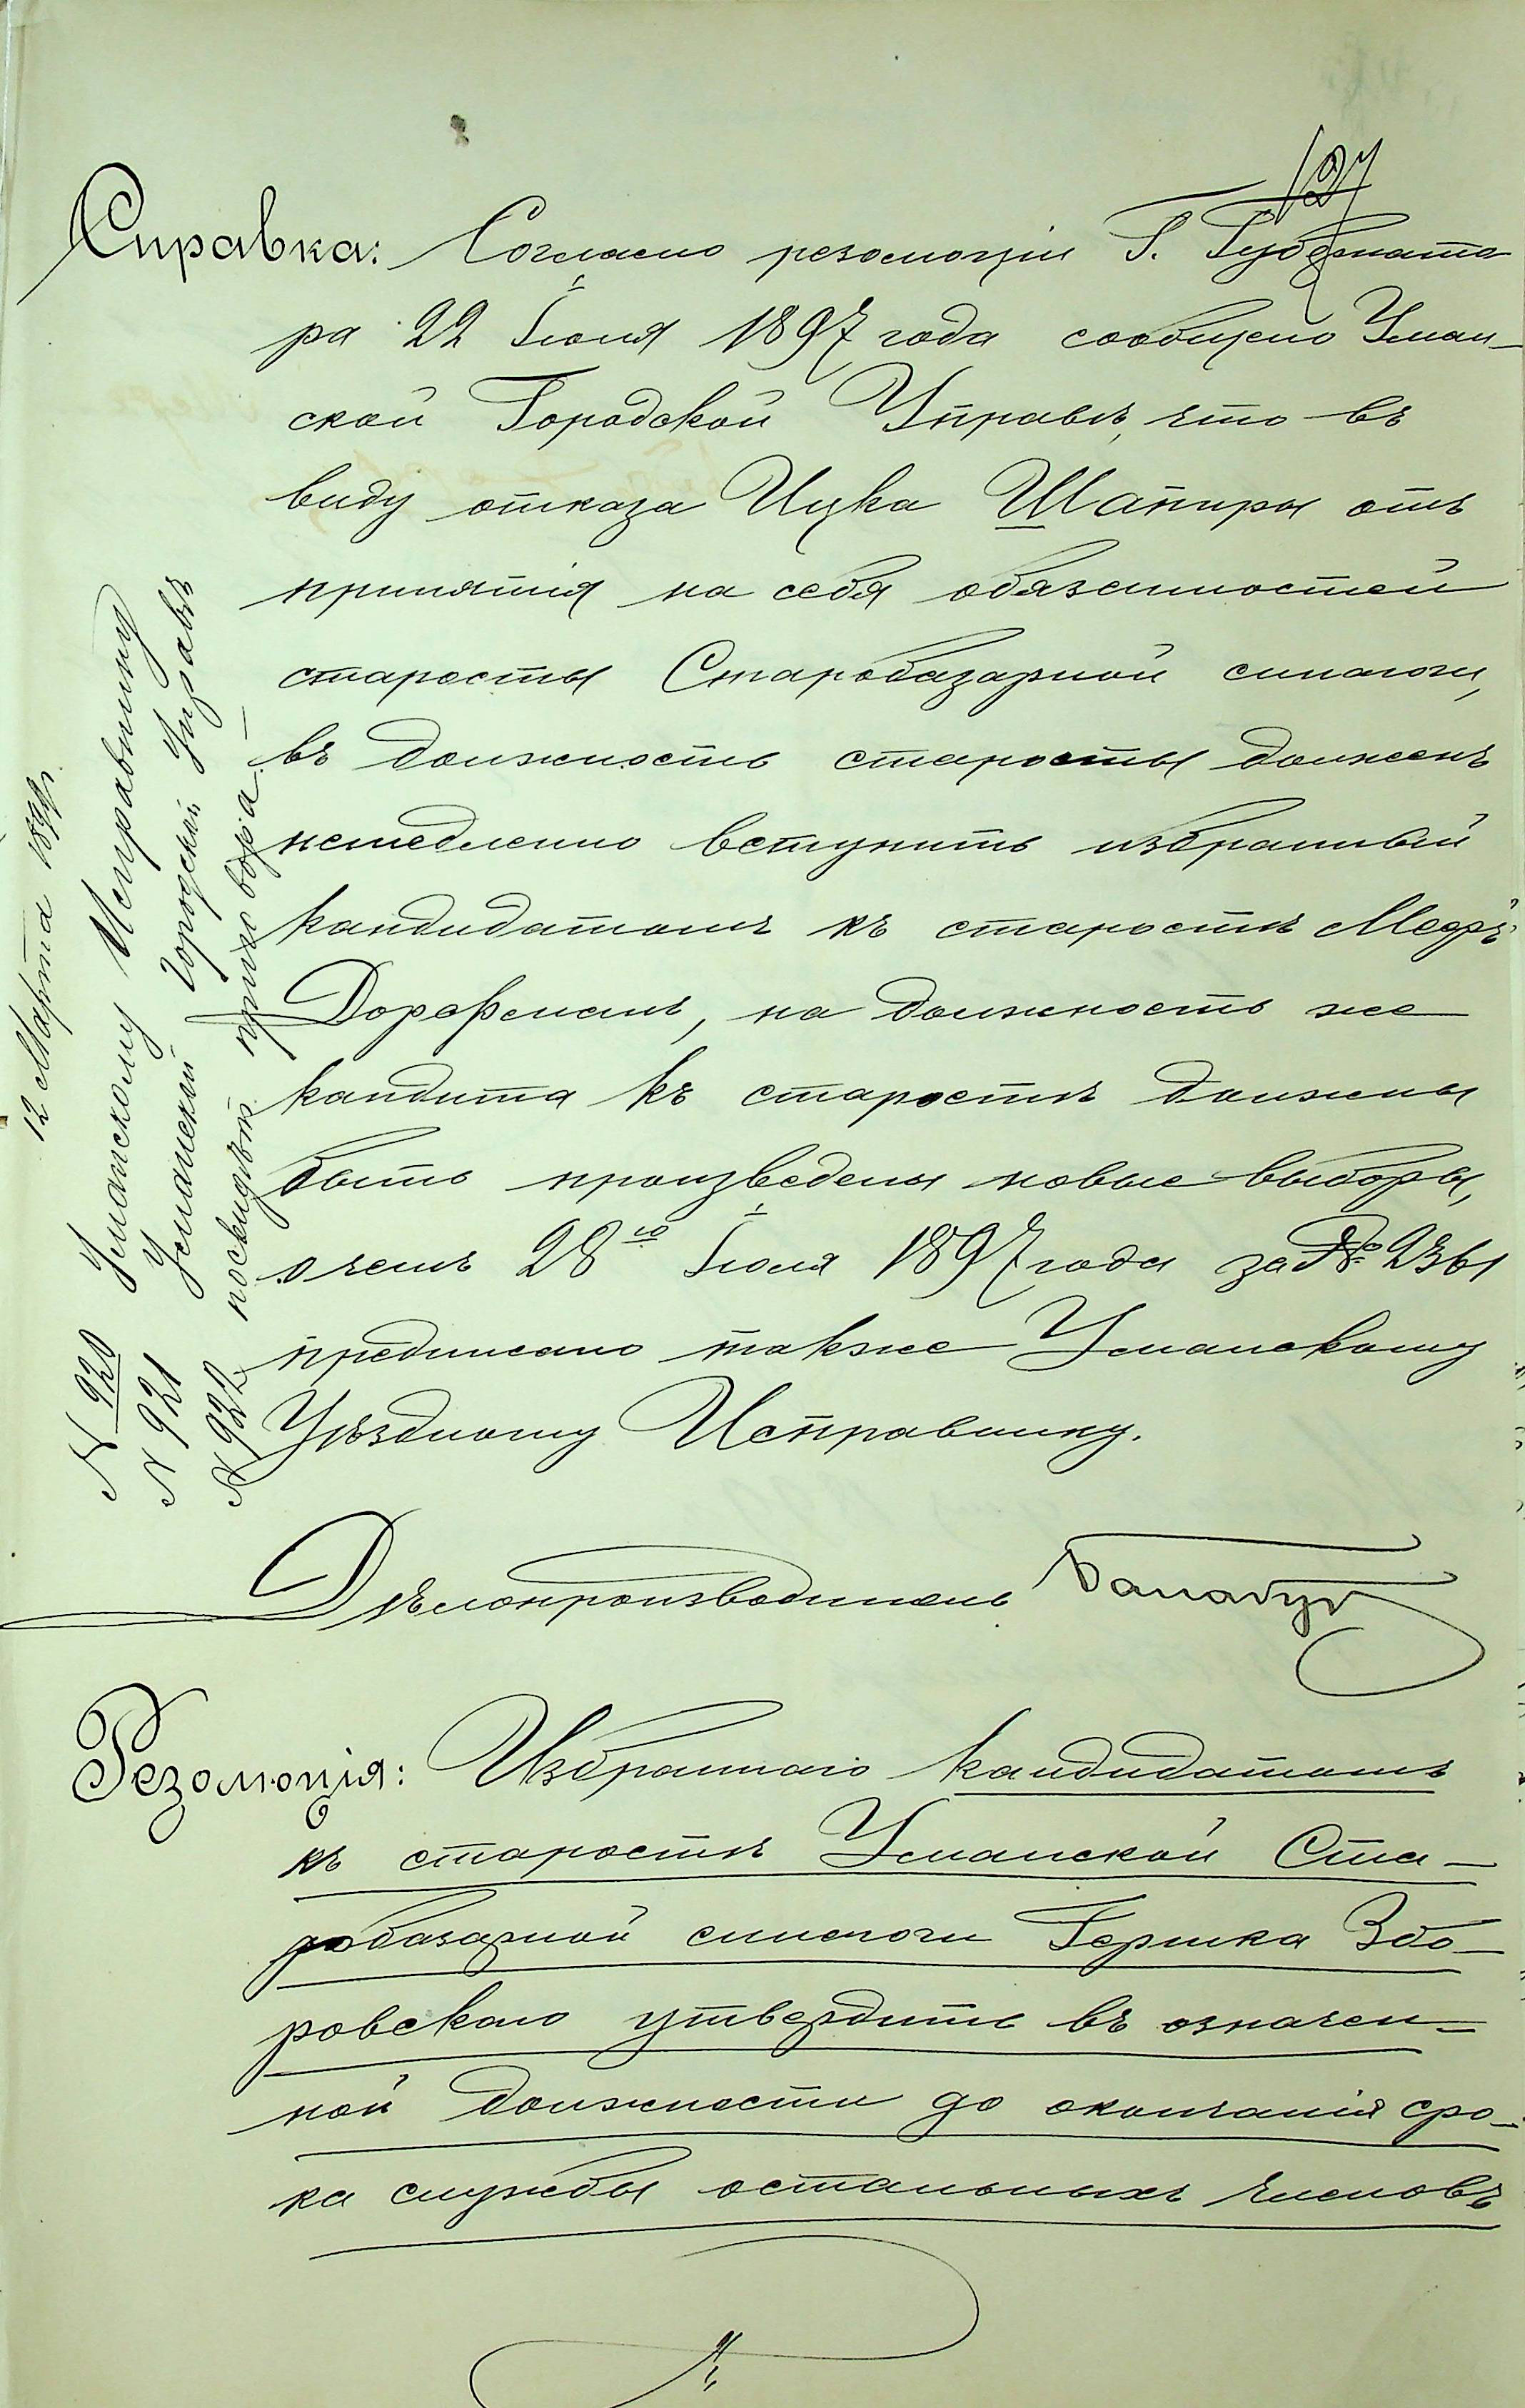 127
Справка: Согласно резолюціи Г. Губернато
ра 22 Іюля 1897 года сообщено Уман-
ской Городской Управѣ, что въ
виду отказа Ицка Шапиры отъ
принятія на себя обязанностей
старосты Старобазарной синагоги,
въ должность старосты долженъ
немедленно вступить избранный
кандидатомъ къ старостѣ Мееръ
Дорфманъ, на должность же
кандита къ старостѣ должны
быть произведены новые выборы,
о чемъ 28го Іюля 1897 года за № 2361
предписано также Уманскому
Уѣздному Исправнику.
Дѣлопроизводитель
Резолюція: Избраннаго кандидатомъ
къ старостѣ Уманской Ста-
робазарной синагоги Гершка Збо-
ровскаго утвердить въ означен-
ной должности до окончанія сро-
ка службы остальныхъ членовъ
12 Марта 189
N 920 Уманскому Исправнику
N 921 Уманской Городской Управѣ
N 922 приговора —